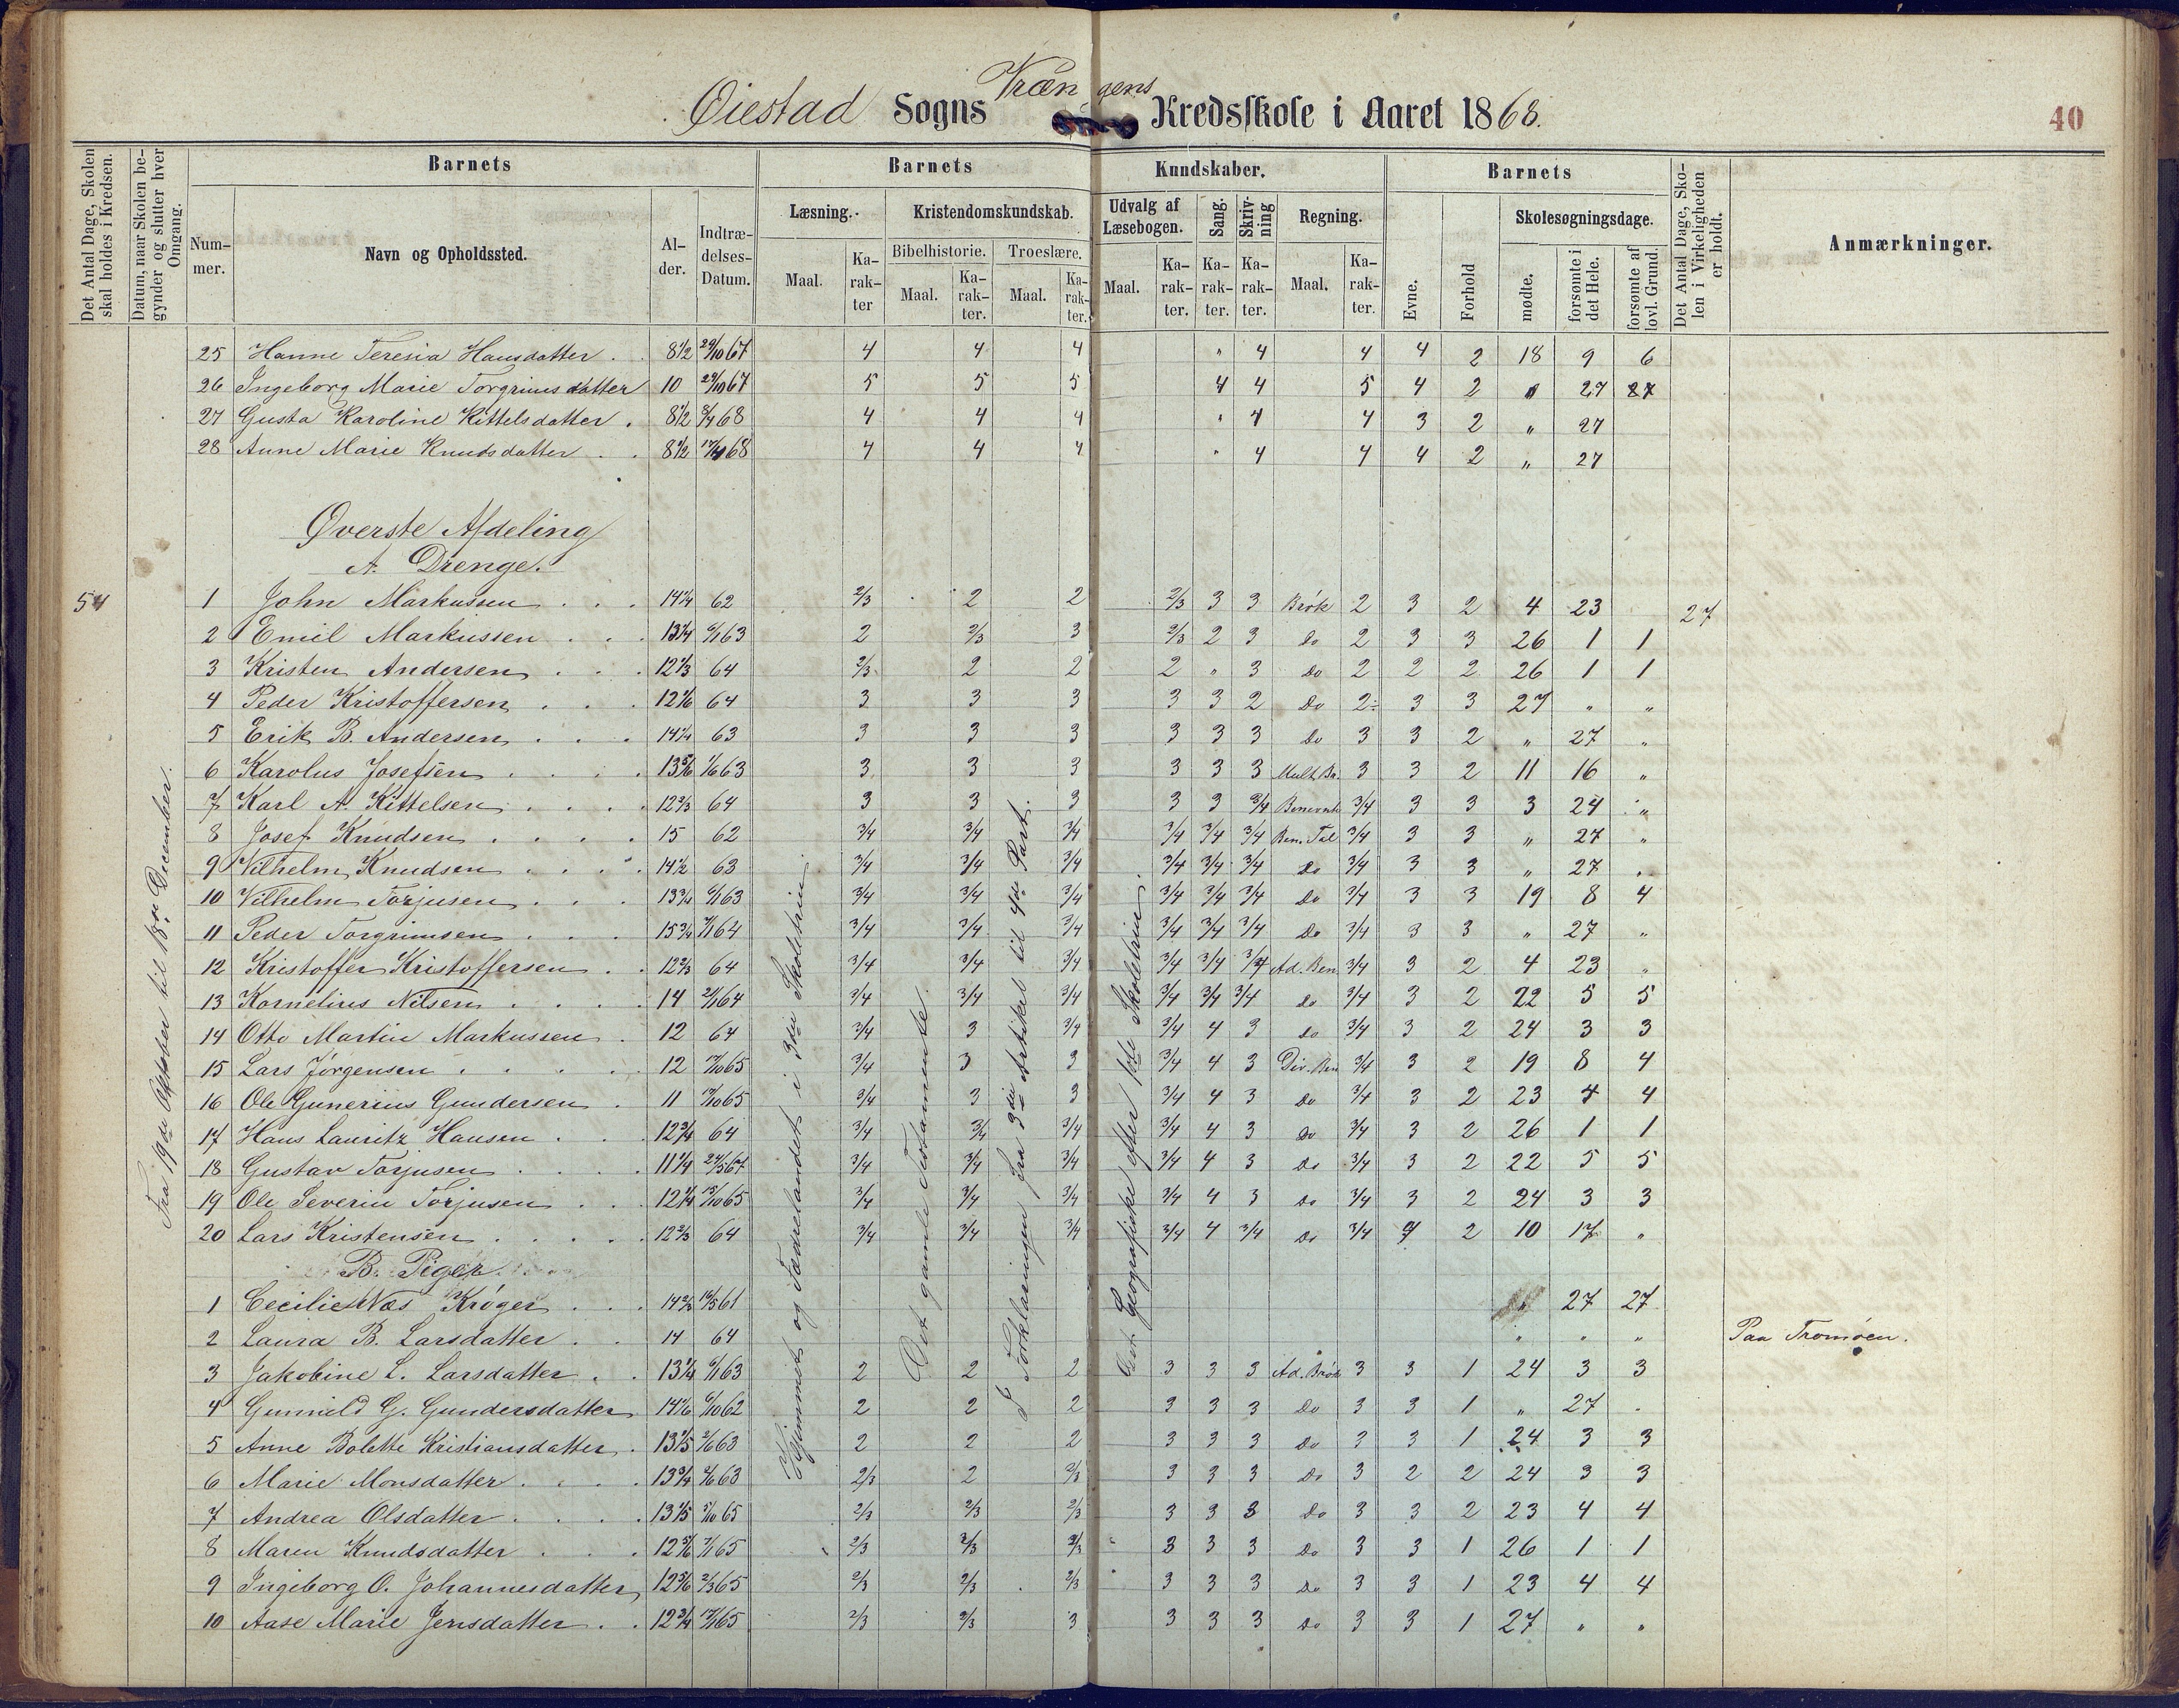 Vrængens
Øiestad Sogns Kredsskole i Aaret 1868.
40
Det Antal Dage, Skolen skal holdes i Kredsen.
Datum, naar Skolen begynder og slutter hver Omgang.
Barnets
Barnets Kundskaber.
Barnets
Det Antal Dage, Skolen i Virkeligheden er holdt.
Anmærkninger.
Nummer. Navn og Opholdssted. Alder. Indtrædelses-Datum.
Læsning. Kristendomskundskab. Udvalg af Læsebogen. Sang. Skrivning Regning. Evne. Forhold Skolesøgningsdage.
Bibelhistorie. Troeslære.
Maal. Karakter Maal. Karakter. Maal. Karakter. Maal. Karakter. Karakter. Karakter. Maal. Karakter. mødte. forsømte i det Hele. forsømte af lovl. Grund.
25 Hanne Teresia Hansdatter . 8 1/2 29/10 67 4 4 4 " 4 4 4 2 18 9 6
26 Ingeborg Marie Torgrimsdatter 10 29/10 67 5 5 5 4 4 5 4 2 " 27 27
27 Gusta Karoline Kittelsdatter . 8 1/2 68 4 4 4 " 4 4 3 2 " 27
28 Anne Marie Knudsdatter . . 8 1/2 68 4 4 4 " 4 4 4 2 " 27
Øverste Afdeling
A. Drenge.
54
1 John Markussen . . . 14 1/4 62 2/3 2 2 2/3 3 3 Brøk 2 3 2 4 23 27
2 Emil Markussen . . . 13 1/4 63 2 2/3 3 2/3 2 3 Do 2 3 3 26 1 1
3 Kristen Andersen . . . 12 1/3 64 2/3 2 2 2 " 3 Do 2 2 2 26 1 1
4 Peder Kristoffersen . . . 12 1/6 64 3 3 3 3 3 2 Do 2÷ 3 3 27 " "
5 Erik B. Andersen . . . 14 1/4 63 3 3 3 3 3 3 Do 3 3 2 " 27 "
6 Karolus Josefsen . . . 13 5/6 63 3 3 3 3 3 3 Mult. Br. 3 3 2 11 16 "
7 Karl A. Kittelsen . . . 12 2/3 64 3 3 3 3 3 3/4 3/4 3 3 3 24 "
8 Josef Knudsen . . . . 15 62 3/4 3/4 3/4 3/4 3/4 3/4 Ben. Tal 3/4 3 3 " 27 "
9 Vilhelm Knudsen . . . . 14 1/2 63 3/4 3/4 3/4 3/4 3/4 3/4 Do 3/4 3 3 " 27 "
10 Vilhelm Torjusen . . . 13 3/4 63 3/4 3/4 3/4 3/4 3/4 3/4 Do 3/4 3 3 19 8 4
11 Peder Torgrimsen . . . 15 3/4 64 3/4 3/4 3/4 3/4 3/4 3/4 Do 3/4 3 3 " 27 "
12 Kristoffer Kristoffersen . . 12 2/3 64 3/4 3/4 3/4 3/4 3/4 3/4 Ad. Ben 3/4 3 2 4 23 "
13 Kornelius Nilsen . . . . 14 64 3/4 3/4 3/4 3/4 3/4 3/4 do 3/4 3 2 22 5 5
14 Otto Martin Markussen . 12 64 3/4 3 3/4 3/4 4 3 do 3/4 3 2 24 3 3
15 Lars Jørgensen . . . . . 12 65 3/4 3 3 3/4 4 3 Div. Ben 3/4 3 2 19 8 4
16 Ole Gunerius Gundersen . 11 65 3/4 3 3 3/4 4 3 Do 3/4 3 2 23 4 4
17 Hans Lauritz Hansen . . 12 3/4 64 3/4 3/4 3/4 3/4 4 3 Do 3/4 3 2 26 1 1
18 Gustav Torjusen . . . . 11 1/4 67 3/4 3/4 3/4 3/4 4 3 Do 3/4 3 2 22 5 5
19 Ole Severin Torjusen . . . 12 1/4 65 3/4 3/4 3/4 3/4 4 3 Do 3/4 3 2 24 3 3
20 Lars Kristensen . . . . . 12 2/3 64 3/4 3/4 3/4 3/4 4 3/4 Do 3/4 2 10 17 "
B. Piger.
1 Cecilie Næs Krøger . . . 61 " 27 27
2 Laura B. Larsdatter . . 14 64 " " " Paa Tromøen.
3 Jakobine L. Larsdatter . . 13 1/4 63 2 2 2 3 3 3 Ad. Brøk 3 3 1 24 3 3
4 Gunnild G. Gundersdatter 14 1/6 62 2 2 2 3 3 3 Do 3 3 1 " 27 "
5 Anne Bolette Kristiansdatter . 13 1/5 63 2 2 2 3 3 3 Do 3 3 1 24 3 3
6 Marie Monsdatter . . . . 13 3/4 63 2/3 2 2/3 3 3 3 Do 3 2 2 24 3 3
7 Andrea Olsdatter . . . . 13 1/5 65 2/3 2/3 2/3 3 3 3 Do 3 3 2 23 4 4
8 Maren Knudsdatter . . . 12 5/6 65 2/3 2/3 2/3 3 3 3 Do 3 3 1 26 1 1
9 Ingeborg O. Johannesdatter 12 5/6 65 2/3 2/3 2/3 3 3 3 Do 3 3 1 23 4 4
10 Aase Marie Jensdatter . . 12 3/4 65 2/3 2/3 3 3 3 3 Do 3 3 1 27 " "
Fra 19de Oktober til 18de December.
Hjemmet og Fædrelandet i 3die Skoletrin.
Det gamle Testamente.
I Forklaringen fra 3die Artikel til 4de Part.
Geografiske efter 1ste Skoletrin.